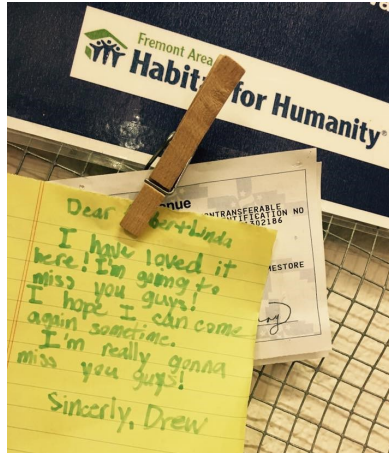 Fremont Area
Habit for Humanity®
nue
ONTRANSFERABLE
NTIFICATION NO
1302186
MESTORE
Dear bert+Linda
I have loved it
here! I'm going to
miss you guys!
I hope I can come
again sometime.
I'm really gonna
miss you guys!
Sincerly, Drew